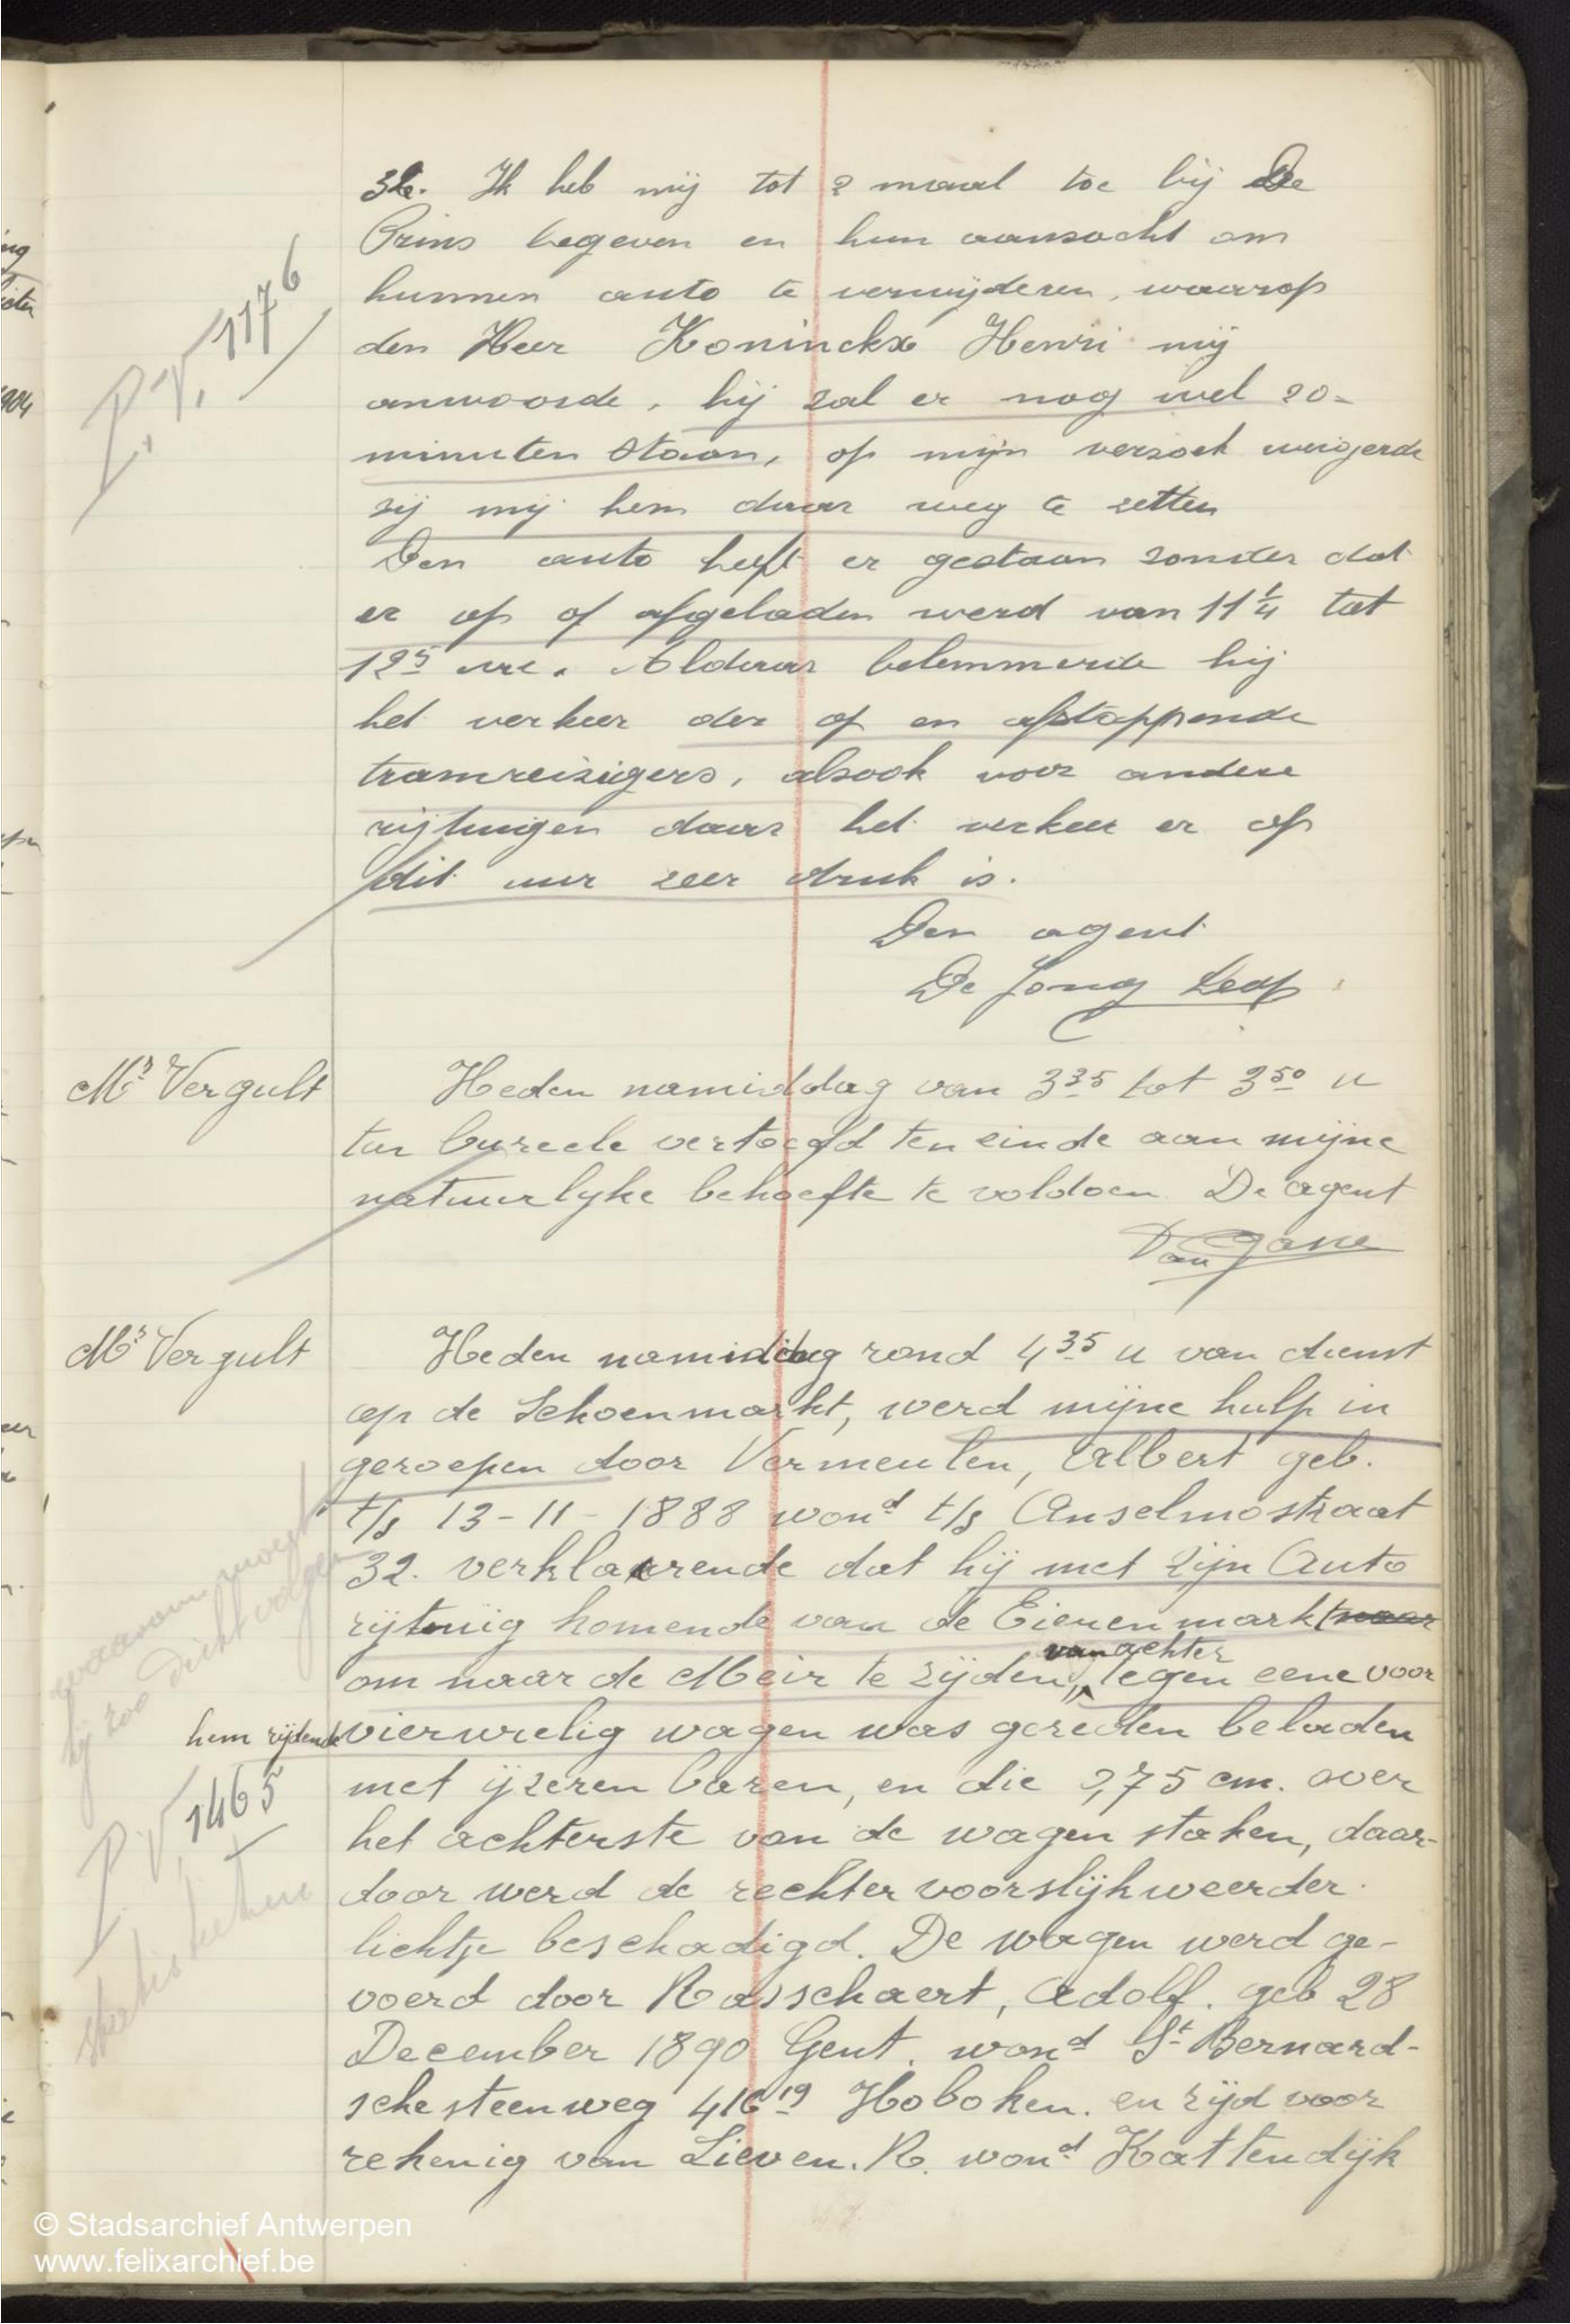 36. Ik heb mij tot 2 maal toe bij De
Prins begeven en hun aanzocht om
hunnen auto te verwijderen, waarop
den Heer Koninckx Henri mij
anwoorde, hij zal er nog wel 20-
minuten staan, op mijn verzoek weigerde
zij mij hem daar weg te zetten
Den auto heeft er gestaan zonder dat
er op of afgeladen werd van 11 1/4 tot
12 5 ure. Aldaar belemmerde hij
het verkeer der op en afstappende
tramreizigers, alsook voor andere
rijtuigen daar het verkeer er op
dit uur zeer druk is.
Den agent
De Jong Leop
P.V. 1176
Mr Vergult
Heden namiddag van 3 35 tot 3 50 u
ten bureele vertoefd ten einde aan mijne
natuurlyke behoefte te voldoen De agent
Van
Mr Vergult
Heden namiddag rond 4 35 u van dienst
op de Schoenmarkt, werd mijne hulp in
geroepen door Vermeulen, Albert geb.
t/s 13-11-1888 wond t/s Anselmostraat
32. verklarende dat hij met zijn Auto
rijtuig komende van de Eierenmarkt naar
om naar de Meir te rijden, van achter tegen eene voor
hem rijdende vierwielig wagen was gereden beladen
met ijzeren baren, en die 2,75 cm. over
het achterste van de wagen staken, daar-
door werd de rechter voorslijkweerder
lichtje beschadigd. De wagen werd ge-
voerd door Rasschaert, Adolf. geb 28
December 1890 Gent. wond St Bernard-
sche steenweg 416 19 Hoboken. en rijd voor
rekenig van Lieven. R. wond Kattendijk
waarom moest
hij zoo dicht volgen
P.V. 1465
© Stadsarchief Antwerpen
www.felixarchief.be